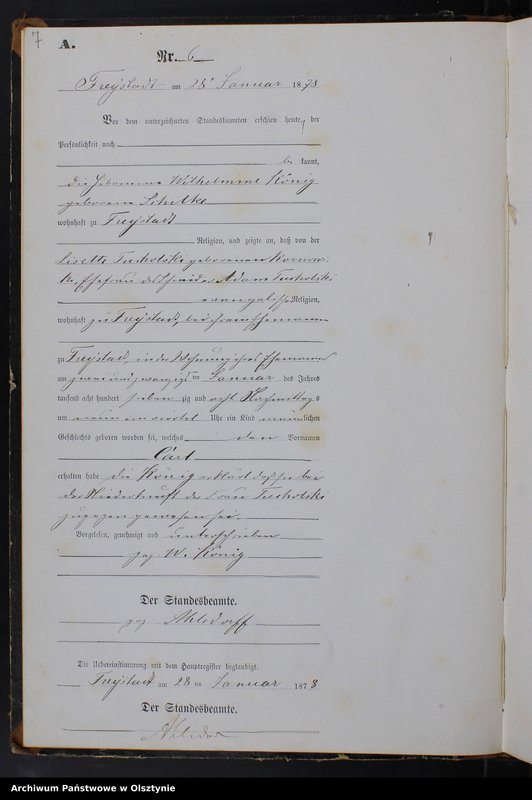 7
A.
Nr. 6
Freystadt am 28ten Januar 1878
Vor dem unterzeichneten Standesbeamten erschien heute, der
Persönlichkeit nach
be kannt,
die Hebamme Wilhelmine König
geborene Schilke
wohnhaft zu Freystadt
Religion, und zeigte an, daß von der
Lisette Tucholski geborenen Kornow-
ski, Ehefrau des Schneider Adam Tucholski
evangelischer Religion,
wohnhaft zu Freystadt, bei ihrem Ehemanne
zu Freystadt, in der Wohnung ihres Ehemannes
am zwei und zwanzigsten Januar des Jahres
tausend acht hundert sieben zig und acht Nachmittags
um neun ein viertel Uhr ein Kind männlichen
Geschlechts geboren worden sei, welches den Vornamen
Carl
erhalten habe die König erklärt daß sie bei
der Niederkunft der Frau Tucholski
zugegen gewesen sei.
Vorgelesen, genehmigt und unterschrieben
gez W. König
Der Standesbeamte.
gez Ahlsdorff
Die Uebereinstimmung mit dem Hauptregister beglaubigt.
Freystadt am 28ten Januar 1878
Der Standesbeamte.
Archiwum Państwowe w Olsztynie